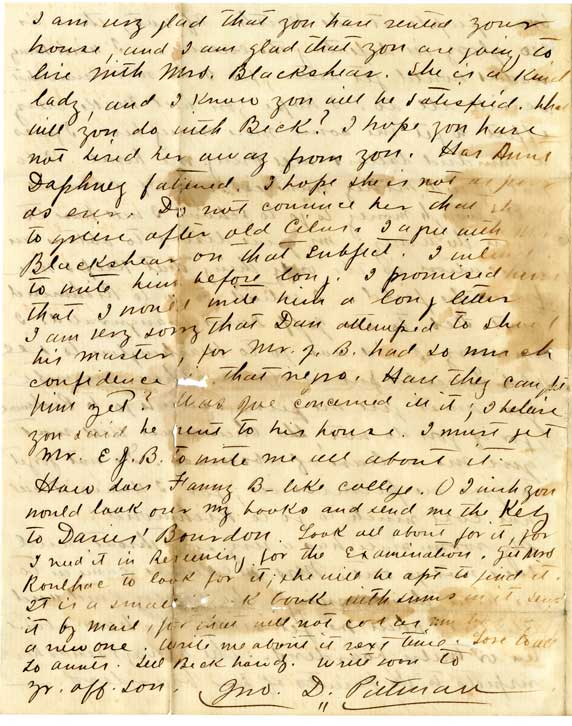 I am very glad that you have rented your
house, and I am glad that you are going to
live with Mrs. Blackshear. She is a kind
lady, and I know you will be satisfied. What
will you do with Beck? I hope you have
not hired her away from you. Has Aunt
Daphney fattened. I hope she is not as poor
as ever. Do not convince her that she
to grieve after old Cilas. I agree with
Blackshear on that subject. I intend
to write him before long. I promised him
that I would write him a long letter
I am very sorry that Dan attemped to shoot
his master, for Mr. J. B. had so much
confidence in that negro. Have they caught
him yet? Was Joe concerned in it; I believe
you said he went to his house. I must get
Mr. E. J. B. to write me all about it.
How does Fanny B– like college. O I wish you
would look over my books and send me the Key
to Davies' Bourdon. Look all about for it, for
I need it in Reviewing for the Examination. Get Mrs
Roulhac to look for it, she will be apt to find it.
It is a small book with sums in it send
it by mail, for that will not cost as much
a new one. Write me about it next time. Love to all
so annis. Tell Beck howdy. Write soon to
yr. aff. son. Jno. D. Pittman